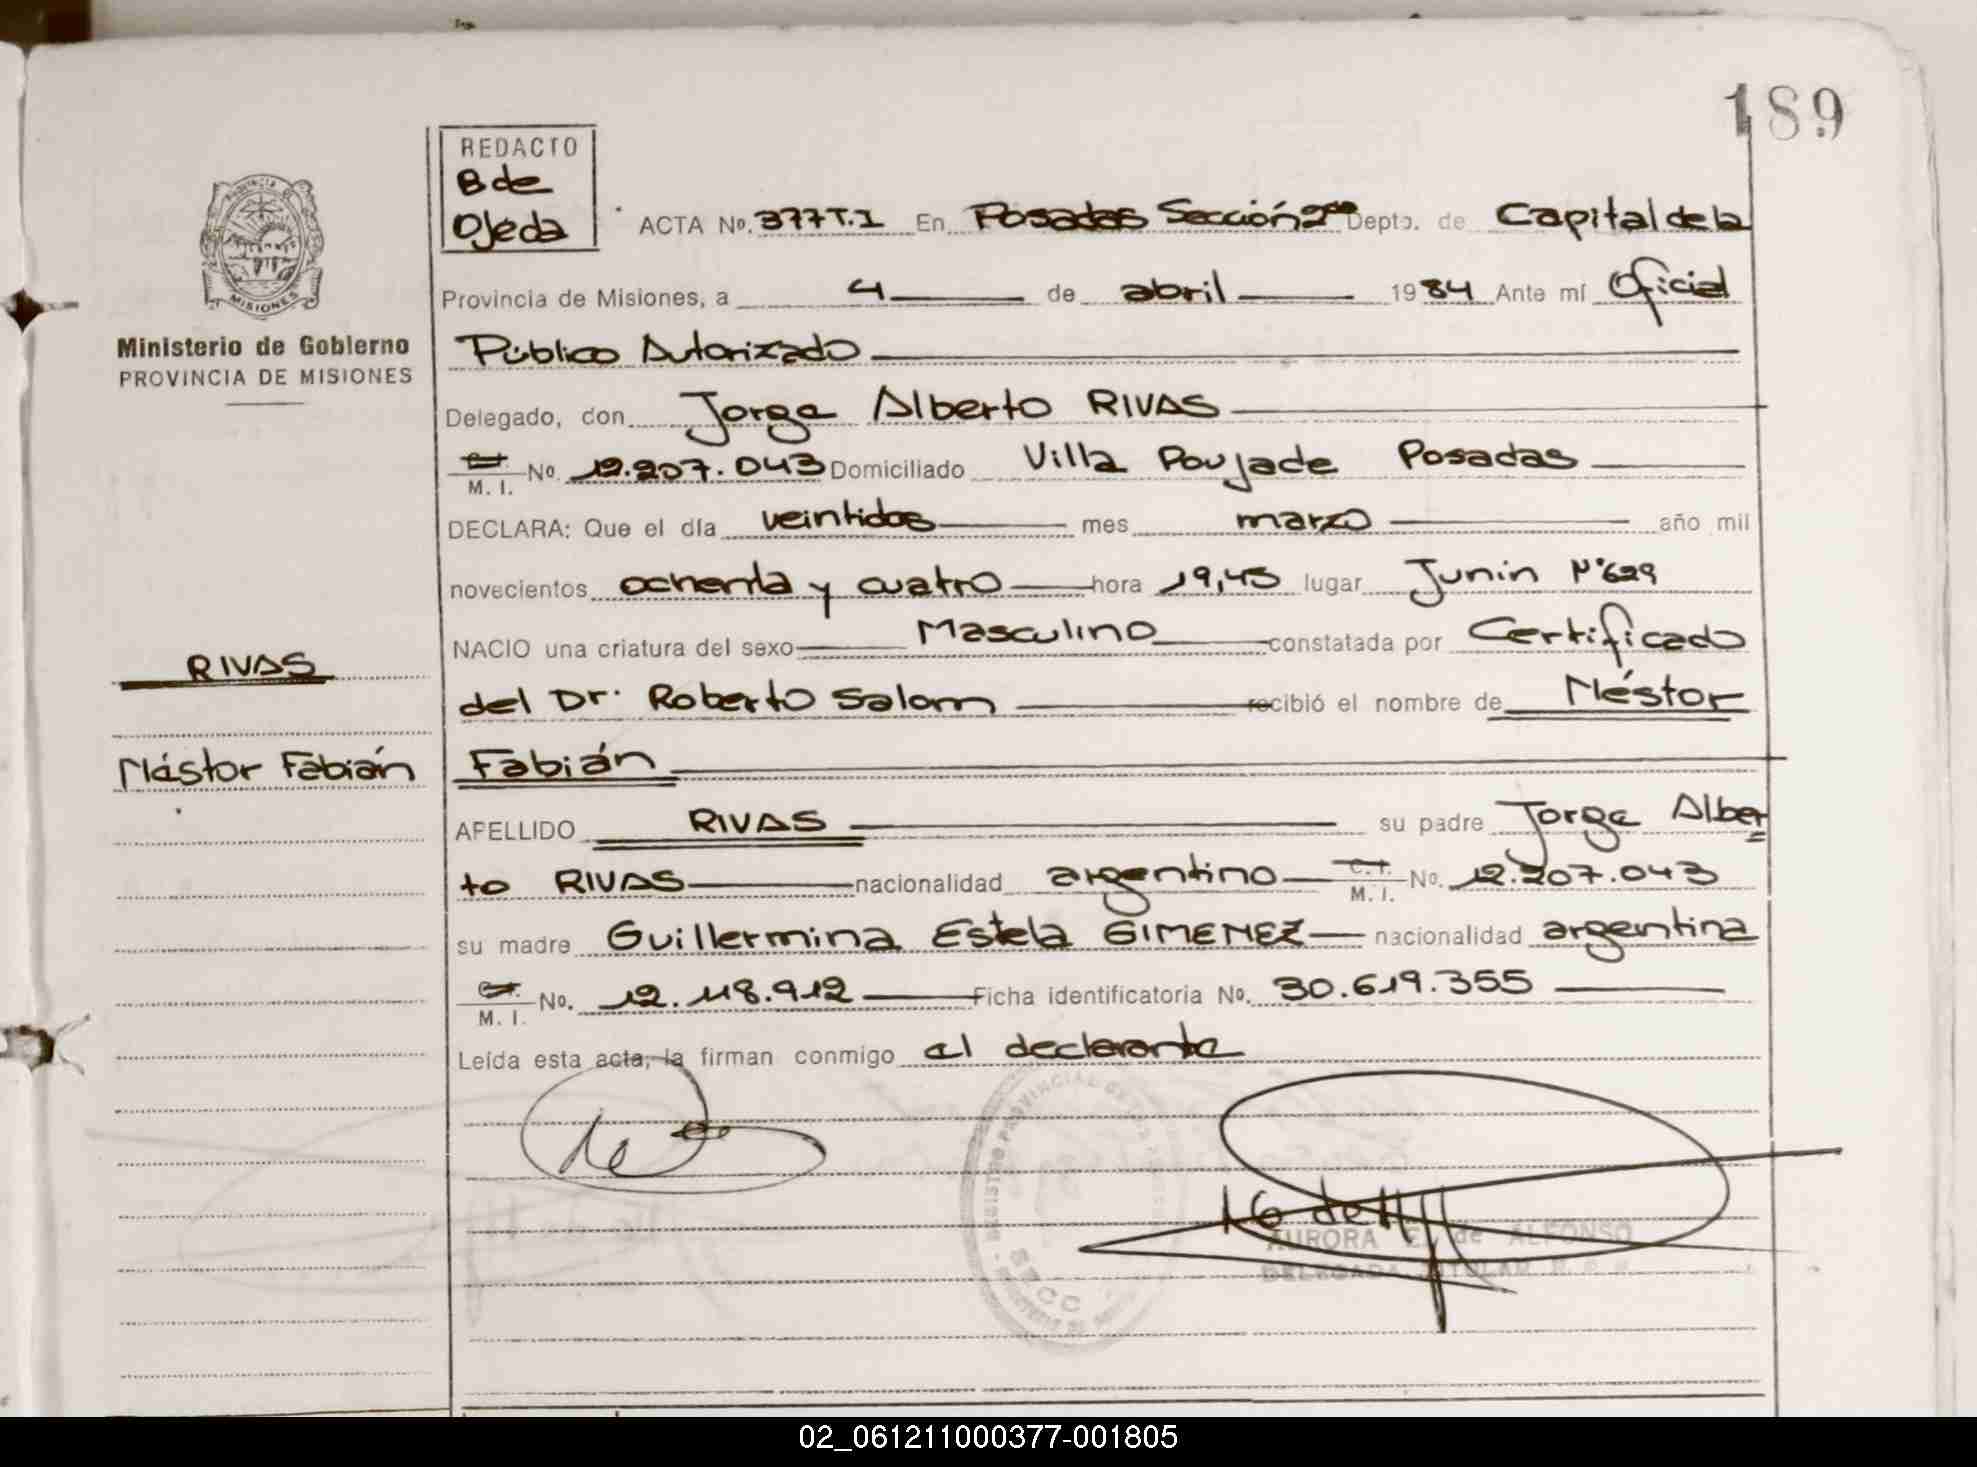 189
REDACTO
B de
Ojeda
ACTA No. 377 T.I En Posadas Sección 2da Depto. de Capital de la
Provincia de Misiones, a 4 de abril 1984 Ante mí Oficial
Público Autorizado
Delegado, don Jorge Alberto RIVAS
M. I. No. 12.207.043 Domiciliado Villa Poujade Posadas
DECLARA: Que el día veintidos mes marzo año mil
novecientos ochenta y cuatro hora 19,45 lugar Junin N°629
NACIO una criatura del sexo Masculino constatada por Certificado
del Dr. Roberto Salom recibió el nombre de Néstor
Fabián
APELLIDO RIVAS su padre Jorge Alber
to RIVAS nacionalidad argentino C.I. M. I. No. 12.207.043
su madre Guillermina Estela GIMENEZ nacionalidad argentina
M. I. No. 12.118.912 Ficha identificatoria No. 30.619.355
Leída esta acta, la firman conmigo el declarante
AURORA E. de ALFONSO
DELEGADA TITULAR
MISIONES
Ministerio de Gobierno
PROVINCIA DE MISIONES
RIVAS
Néstor Fabián
02_061211000377-001805